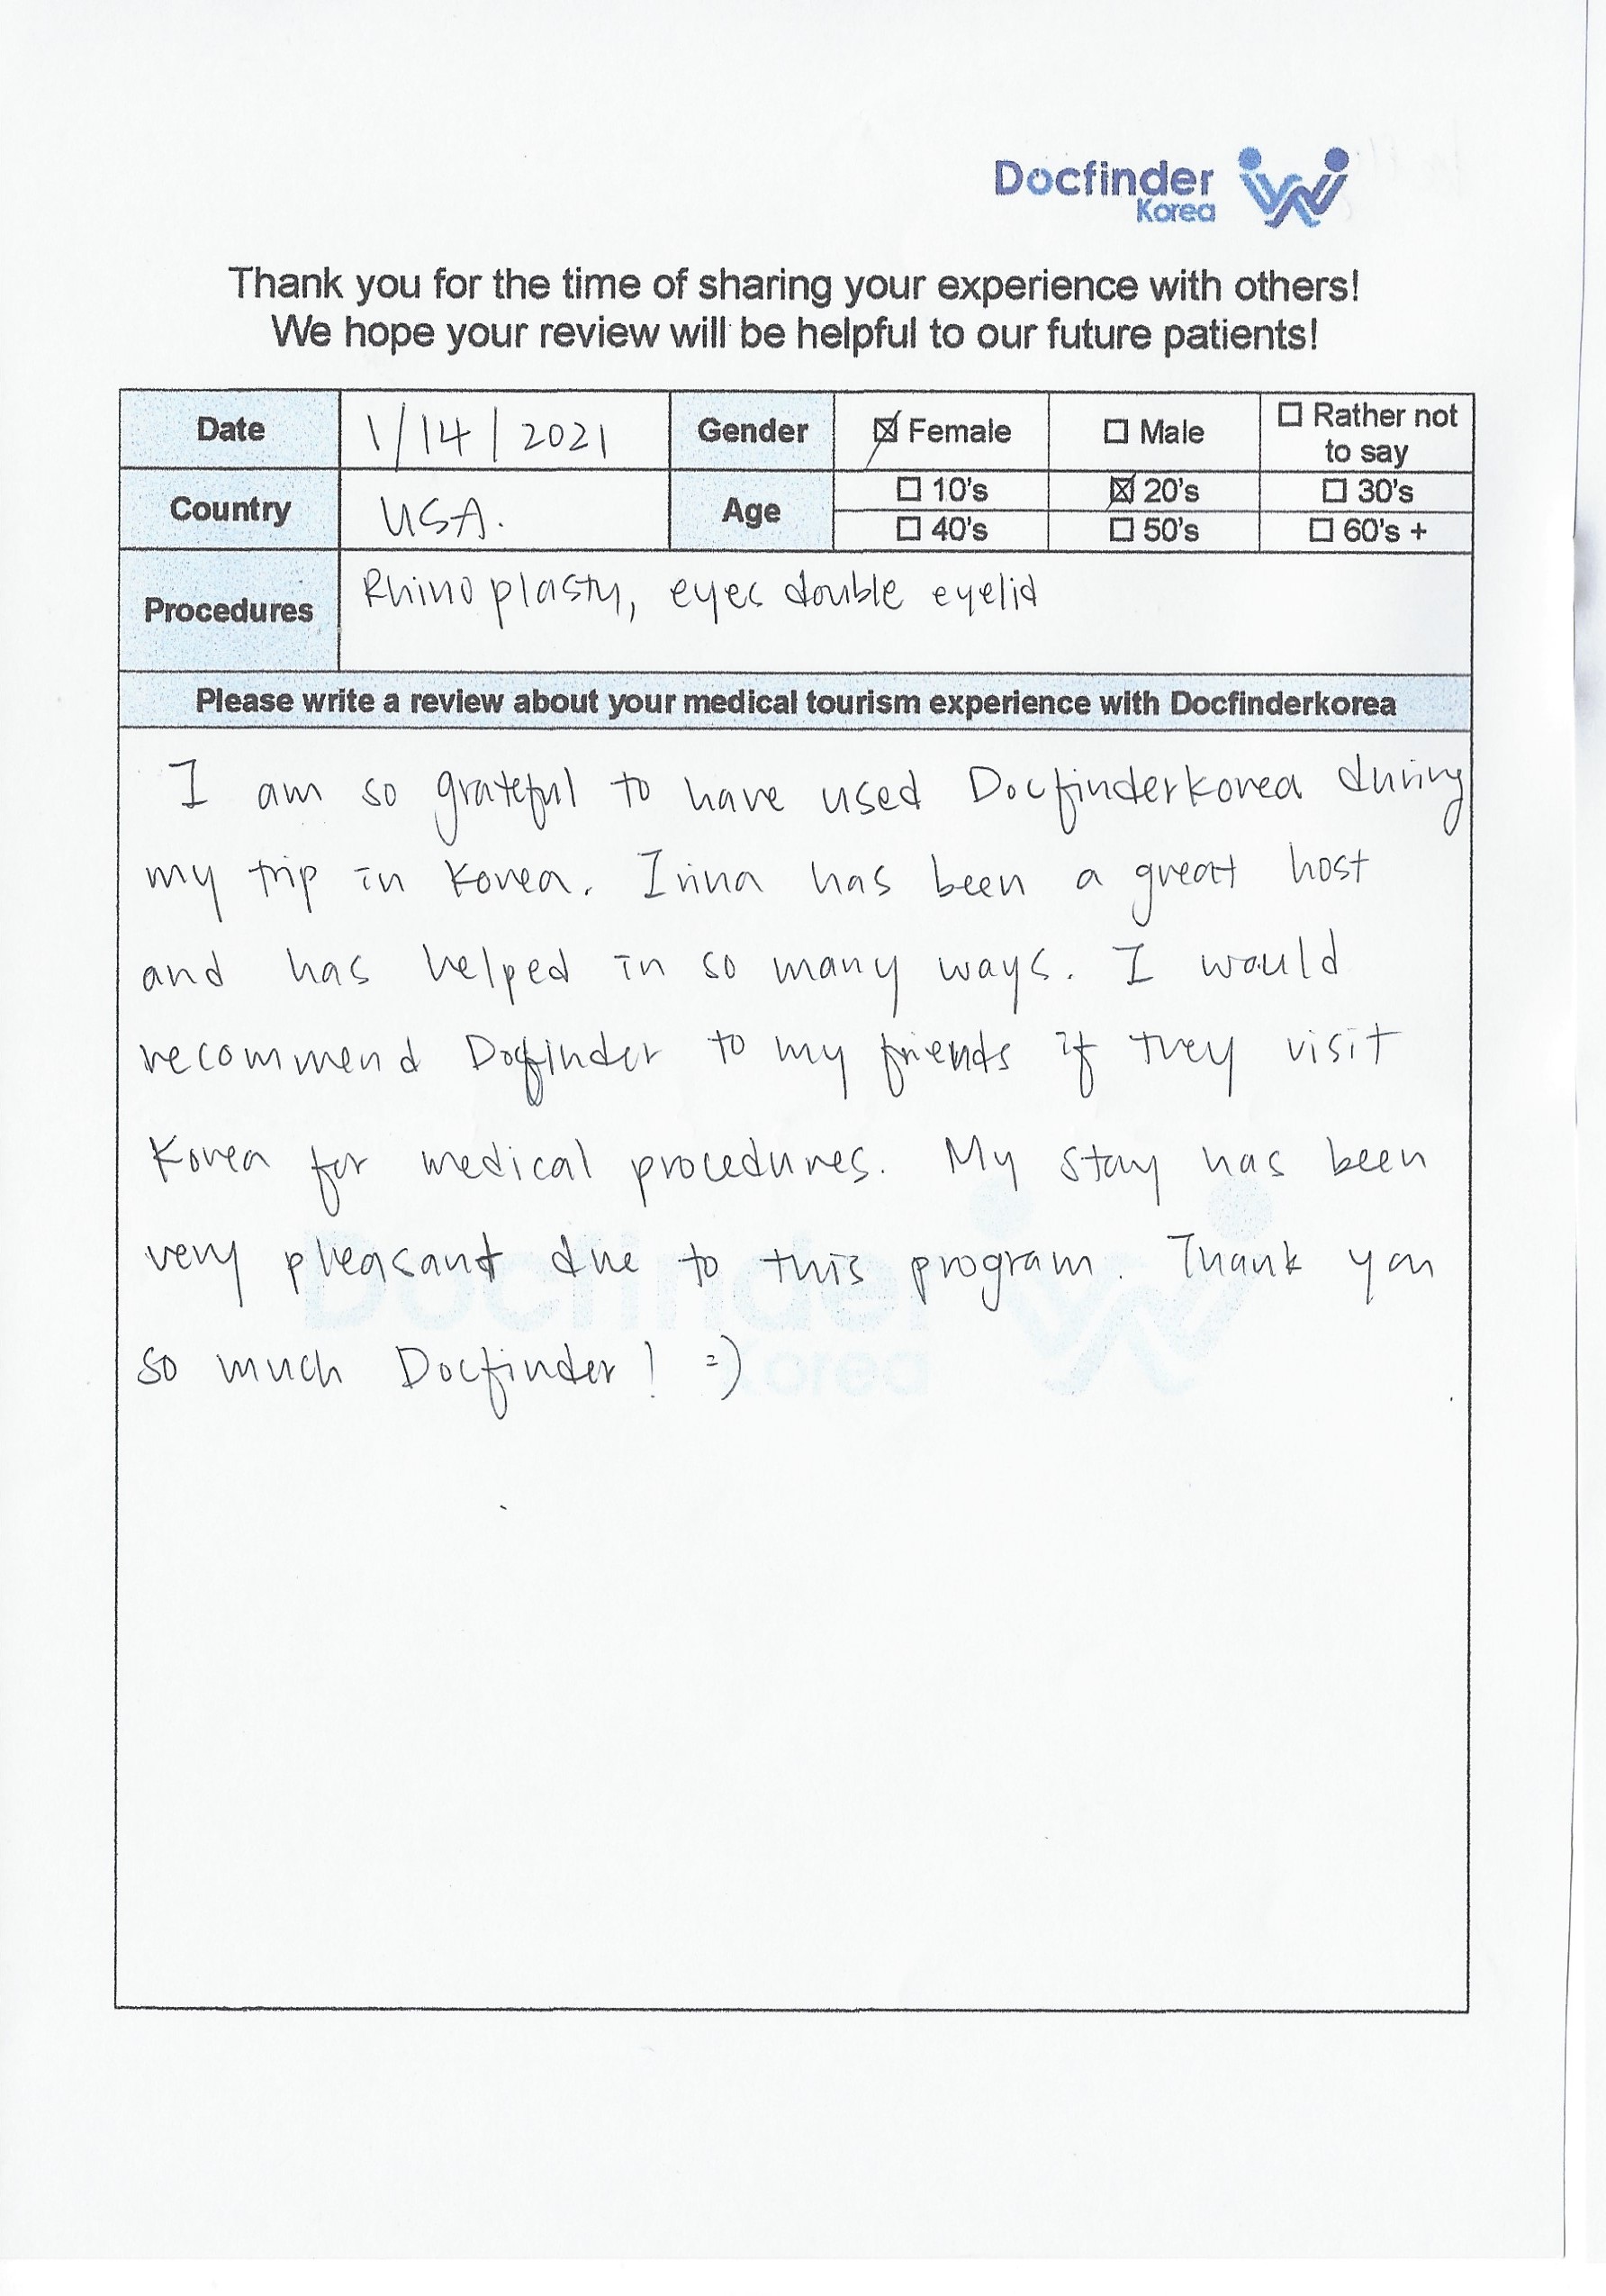 Docfinder
Korea
Thank you for the time of sharing your experience with others!
We hope your review will be helpful to our future patients!
Date 1/14/2021 Gender ☒ Female ☐ Male ☐ Rather not to say
Country USA. Age ☐ 10's ☒ 20's ☐ 30's
☐ 40's ☐ 50's ☐ 60's +
Procedures Rhinoplasty, eyes double eyelid
Please write a review about your medical tourism experience with Docfinderkorea
I am so grateful to have used Docfinderkorea during
my trip in Korea. Irina has been a great host
and has helped in so many ways. I would
recommend Docfinder to my friends if they visit
Korea for medical procedures. My stay has been
very pleasant due to this program. Thank you
so much Docfinder! =)
Docfinder
Korea